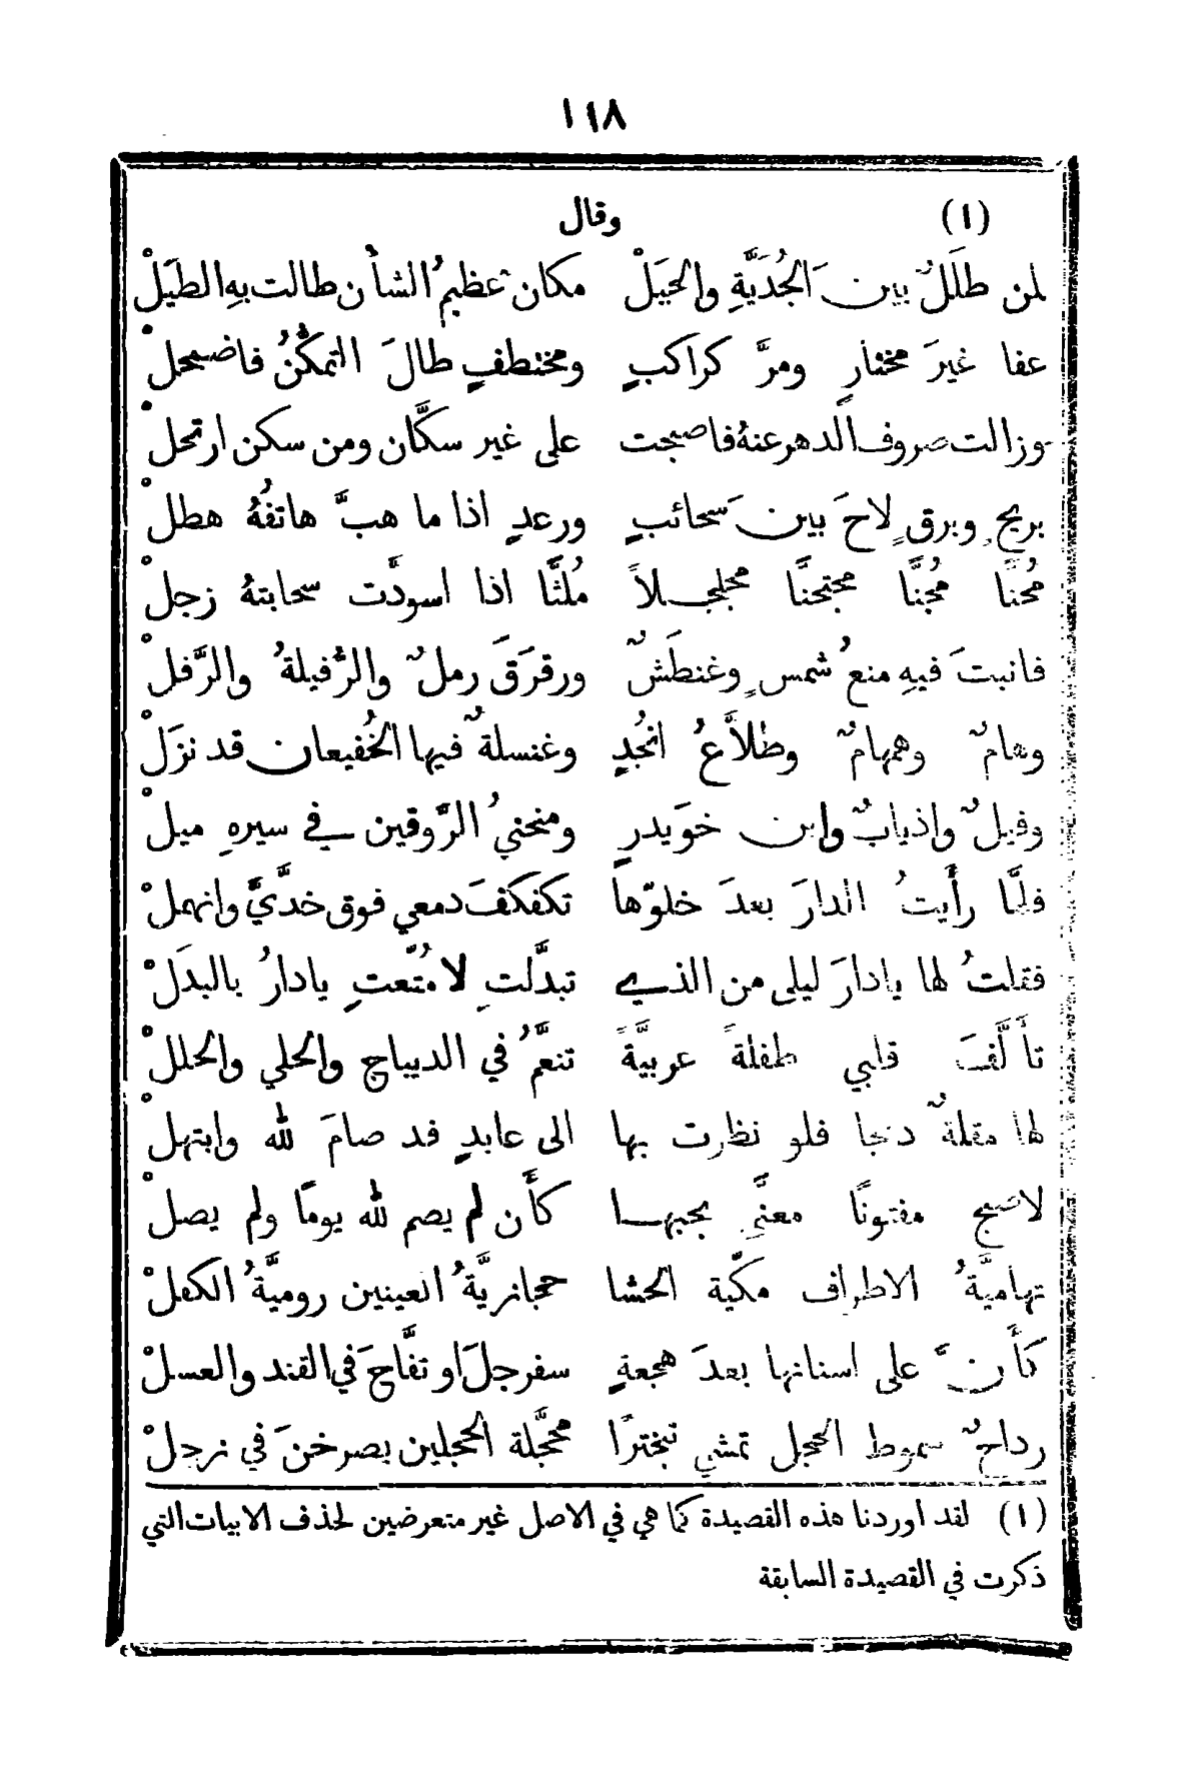 ١١٨
(١) وقال
لمن طلَلٌ بين الجُدَيَّةِ والحَبَلْ مكان عظيمُ الشأن طالت بهِ الطيَلْ
عفا غيرَ مختارٍ ومرَّ كراكبٍ ومختطفٍ طالَ التمكُّنُ فاضمحلْ
وزالت صروف الدهر عنهُ فاصبحت على غير سكَّان ومن سكن ارتحلْ
بريحٍ وبرقٍ لاحَ بين سَحائبٍ ورعدٍ اذا ما هبَّ هاتفُهُ هطلْ
مُحنًّا مُجنًّا مجتحنًّا مجلجلاً مُلثًّا اذا اسودَّت سحابتهُ زجلْ
فانبتَ فيهِ منعُ شمسٍ وغنطَشٌ ورقرَقَ رملٌ والرُّفيلةُ والرَّفلْ
وهامٌ وهمهامٌ وطلاَّعُ انجُدٍ وغنسلةٌ فيها الخُفيعان قد نزَلْ
وفيلٌ واذيابٌ وابن خوَيدرٍ ومنحنيُ الرَّوقين في سيرهِ ميلْ
فلمَّا رأَيتُ الدارَ بعدَ خلوّها تكفكفَ دمعي فوق خدَّيَّ وانهملْ
فقلتُ لها يادارَ ليلى من الذي تبدَّلتِ لا مُتّعتِ يادارُ بالبدَلْ
تأَلَّفَ قلبي طفلةً عربيَّةً تنعَّمُ في الديباج والحلي والحللْ
لها مقلةٌ دعجا فلو نظرت بها الى عابدٍ قد صامَ لله وابتهلْ
لاصبح مفتونًا معنًّى بحبها كأَن لم يصم لله يومًا ولم يصلْ
تهاميَّةُ الاطراف مكّية الحشا حجازيَّةُ العينين روميَّةُ الكفلْ
كأَنَّ على اسنانها بعدَ هجعةٍ سفرجلَ او تفَّاحَ في القند والعسلْ
رداحٌ سموط الحجل تمشي تبخترًا محجَّلة الحجلين يصرخنَ في زجلْ
(١) لقد اوردنا هذه القصيدة كما هي في الاصل غير متعرضين لحذف الابيات التي
ذكرت في القصيدة السابقة